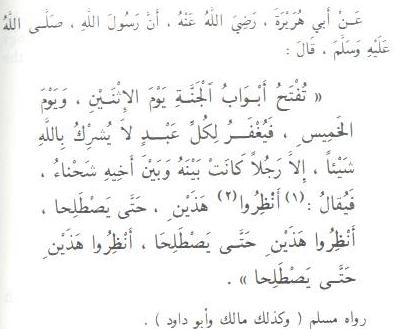 عَنْ أَبِي هُرَيْرَةَ ، رَضِيَ اللهُ عَنْهُ ، أَنَّ رَسُولَ اللهِ ، صَلَّى اللهُ
عَلَيْهِ وَسَلَّمَ ، قَالَ :
« تُفْتَحُ أَبْوَابُ الْجَنَّةِ يَوْمَ الإِثْنَيْنِ ، وَيَوْمَ
الْخَمِيسِ ، فَيُغْفَرُ لِكُلِّ عَبْدٍ لاَ يُشْرِكُ بِاللَّهِ
شَيْئاً ، إِلاَّ رَجُلاً كَانَتْ بَيْنَهُ وَبَيْنَ أَخِيهِ شَحْناءُ ،
فَيُقالُ :(١) أَنْظِرُوا(٢) هَذَيْنِ ، حَتَّى يَصْطَلِحا ،
أَنْظِرُوا هَذَيْنِ حَتَّى يَصْطَلِحا ، أَنْظِرُوا هَذَيْنِ
حَتَّى يَصْطَلِحا » .
رواه مسلم ( وكذلك مالك وأبو داود ) .